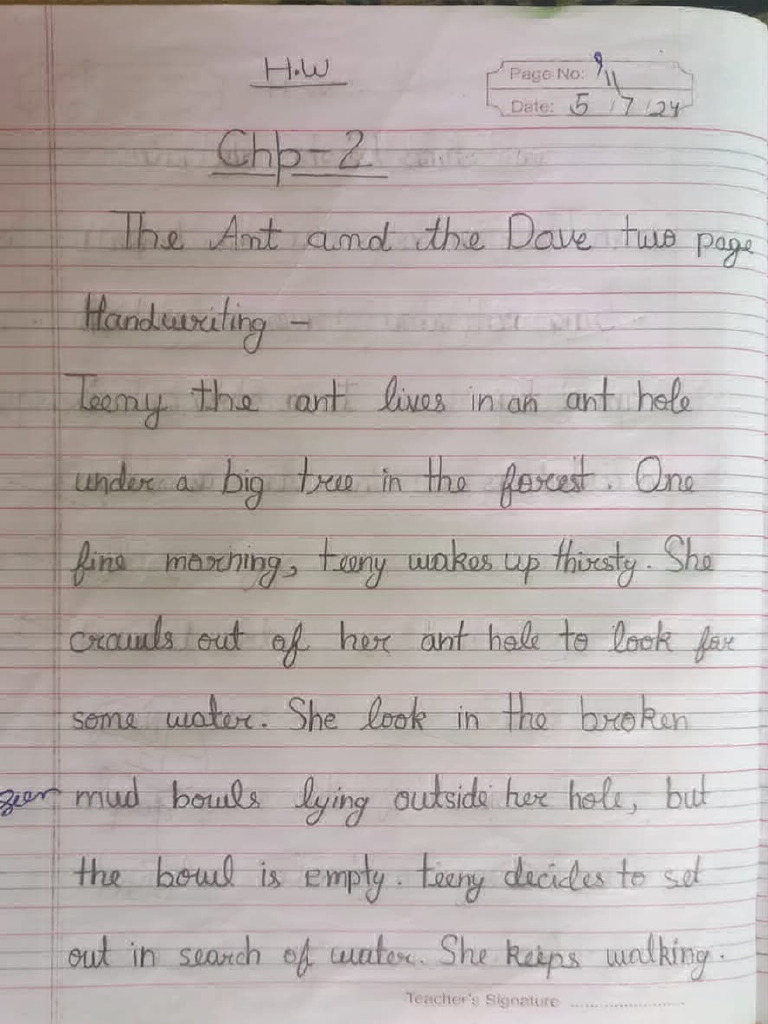 H.W
Page No: 9/11
Date: 5/7/24
Chp-2
The Ant and the Dave two page
Handwriting -
Teeny the ant lives in an ant hole
under a big tree in the forest. One
fine morning, teeny wakes up thirsty. She
crawls out of her ant hole to look for
some water. She look in the broken
mud bowls lying outside her hole, but
the bowl is empty. teeny decides to set
out in search of water. She keeps walking.
Teacher's Signature ....................